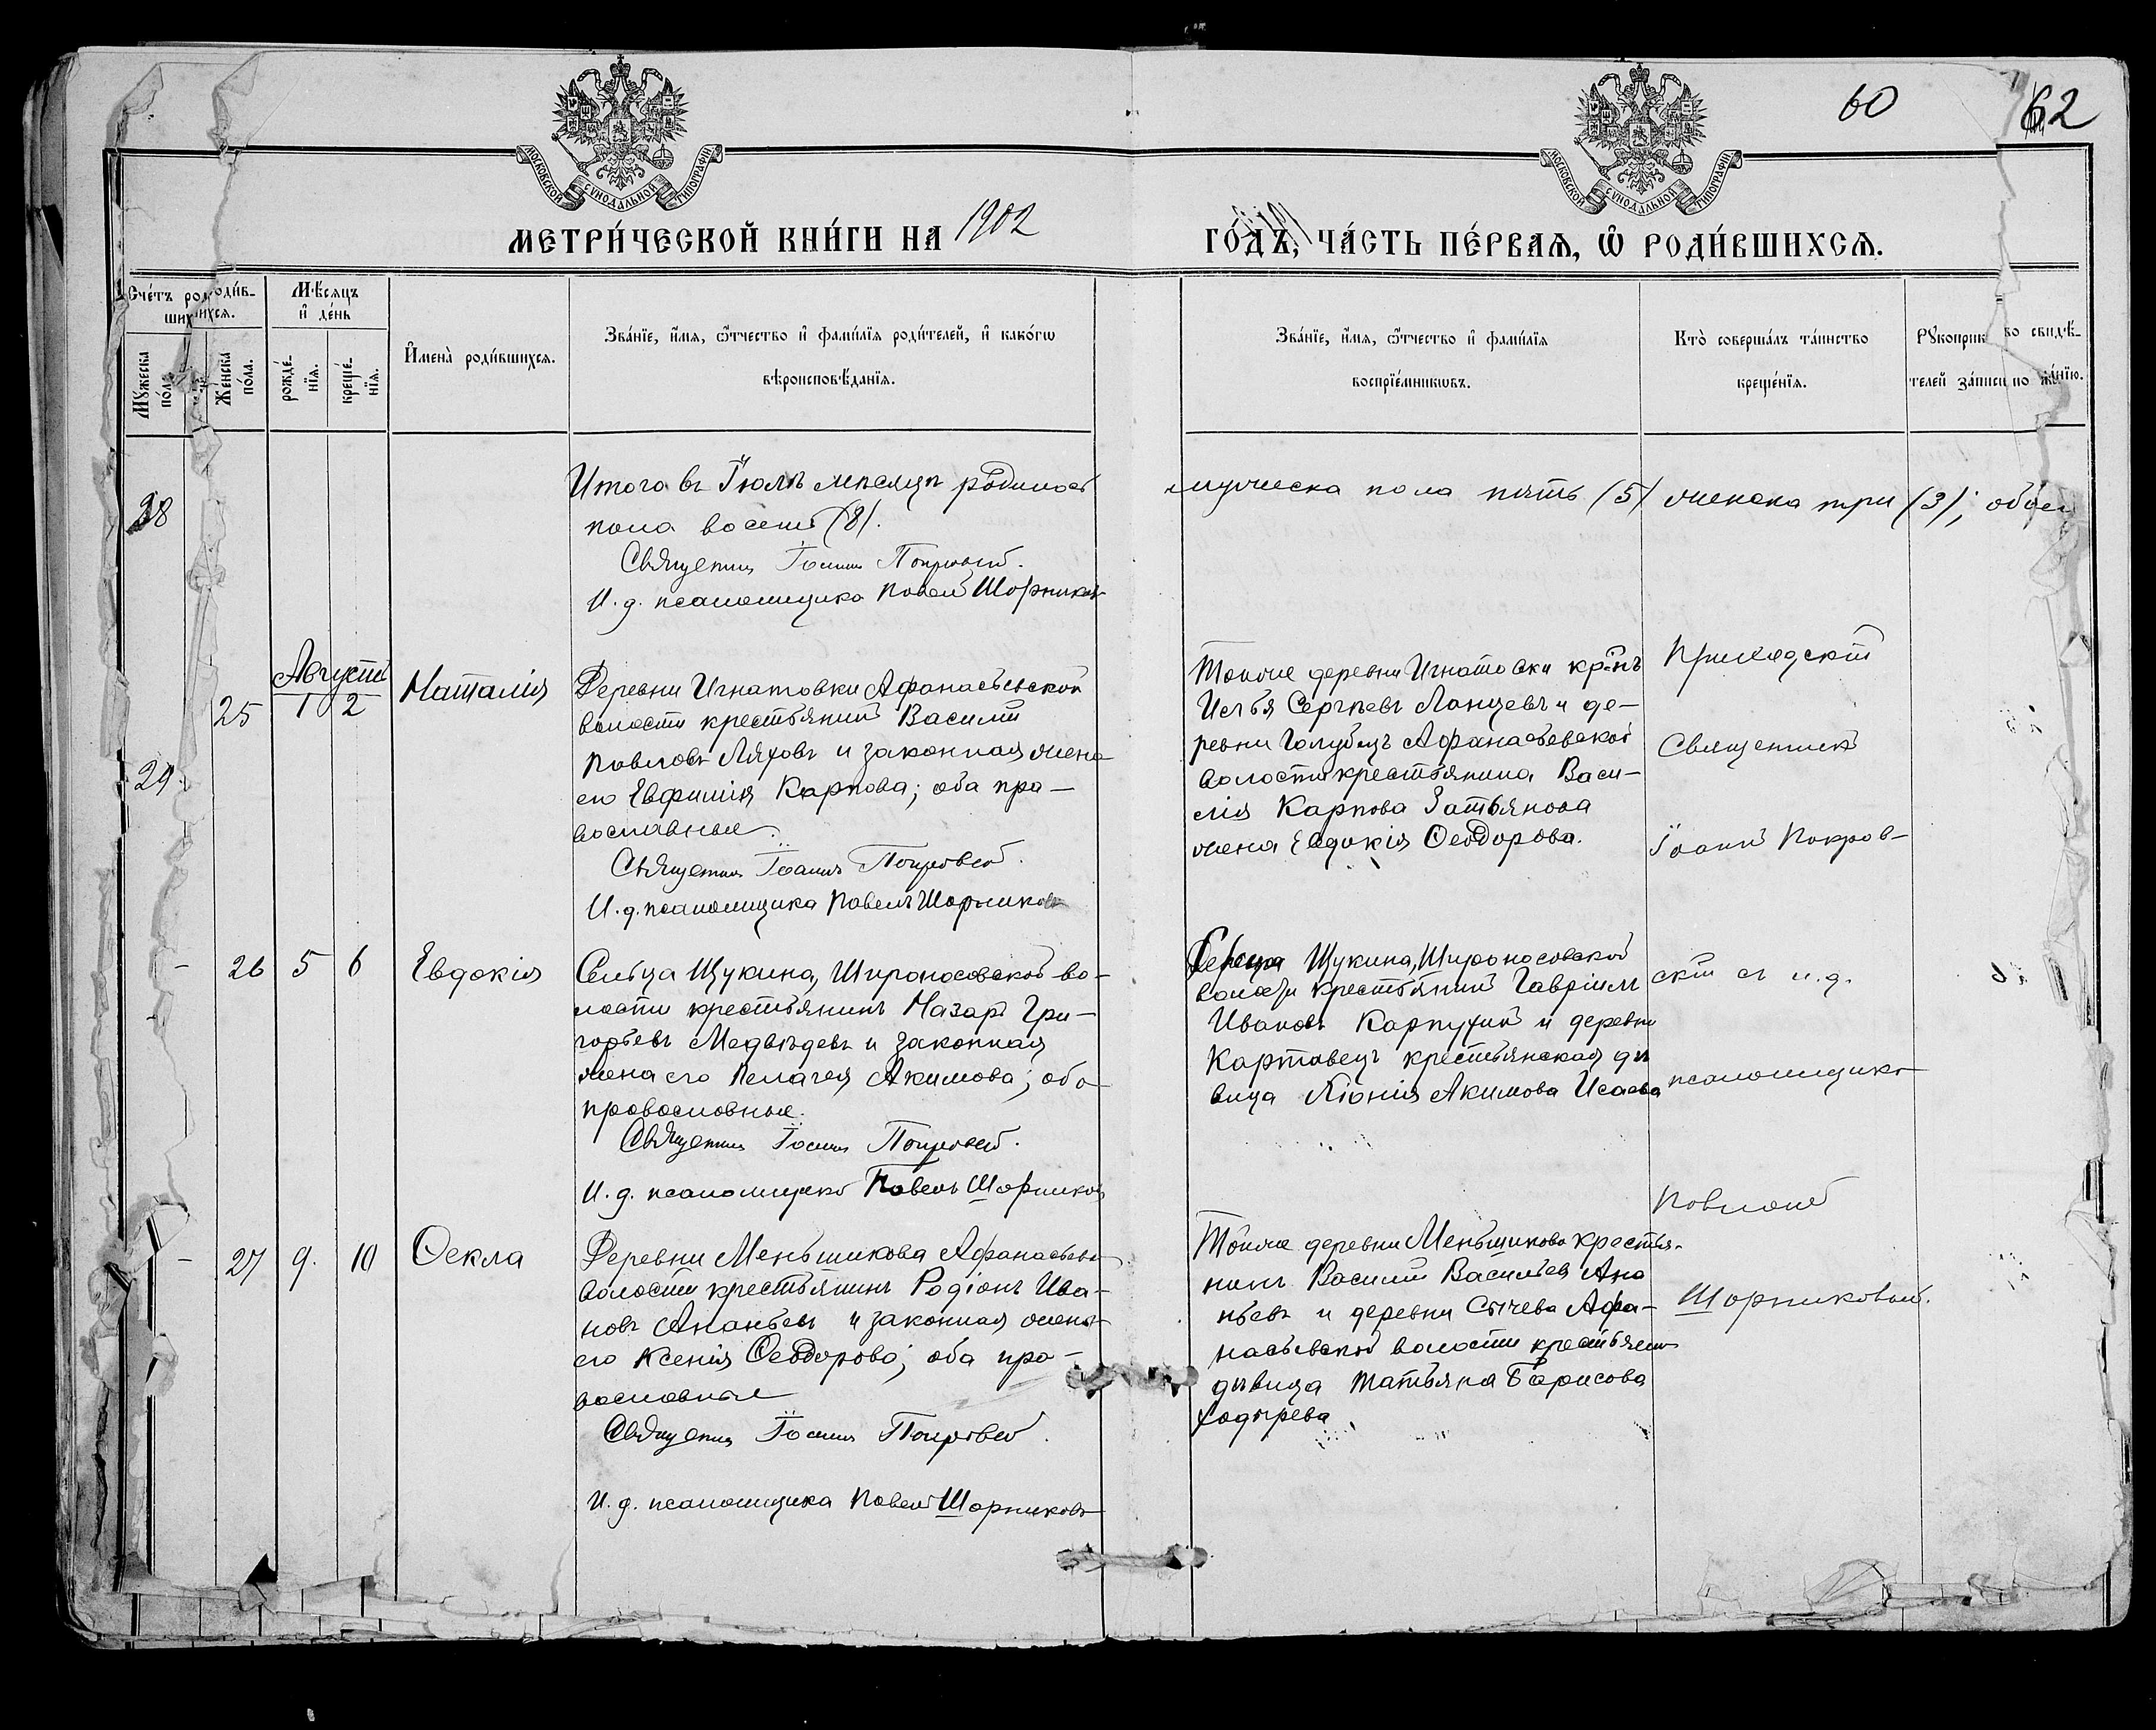 60 62
МОСКОВСКОЙ СѴНОДАЛЬНОЙ ТИПОГРАФІИ
МОСКОВСКОЙ СѴНОДАЛЬНОЙ ТИПОГРАФІИ
МЕТРИ́ЧЕСКОЙ КНИ́ГИ НА 1902 ГО́ДЪ, ЧА́СТЬ ПЕ́РВАЯ, Ѡ҆ РОДИ́ВШИХСЯ.
Сче́тъ роди́в-
шихся.
Мꙋжеска по́ла.
Же́нска по́ла.
Мѣ́сяцъ
и҆ де́нь
рожде́-
нїя.
креще́-
нїя.
И҆мена̀ роди́вшихся.
Зва́нїе, и҆́мя, ѻ҆́тчество и҆ фами́лїя роди́телей, и҆ како́гѡ
вѣроисповѣ́данїя.
Зва́нїе, и҆́мя, ѻ҆́тчество и҆ фами́лїя
воспрїе́мникѡвъ.
Кто̀ соверша́лъ та́инство
креще́нїя.
Рꙋкоприк во свидѣ́-
телей за́писи по жела́нїю.
Итого въ Іюлѣ мѣсяцѣ родилось мужеска пола пять (5) женска три (3); обоего
28
пола восемь (8).
Священникъ Іоаннъ Покровскій.
И. д. псаломщика Павелъ Шорниковъ
Августъ
25 1 2 Наталія
29.
Деревни Игнатовки Афанасьевской
волости крестьянинъ Василій
Павловъ Ляховъ и законная жена
его Евфимія Карпова; оба пра-
вославные.
Священникъ Іоаннъ Покровскій.
И. д. псаломщика Павелъ Шорниковъ
Тойже деревни Игнатовки кр-нъ
Илья Сергѣевъ Ланцевъ и де-
ревни Голубецъ Афанасьевской
волости крестьянина Васи-
лія Карпова Затьянова
жена Евдокія Ѳеодорова.
Приходскій
Священникъ
Іоаннъ Покров-
- 26 5 6 Евдокія
Сельца Щукина, Широносовской во-
лости крестьянинъ Назаръ Гри-
горьевъ Медвѣдевъ и законная
жена его Пелагея Акимова; оба
православные.
Священникъ Іоаннъ Покровскій.
И. д. псаломщика Павелъ Шорниковъ
Щукина, Широносовской
волости крестьянинъ Гавріилъ
Ивановъ Карпухинъ и деревни
Картавецъ крестьянская дѣ
вица Хіонія Акимова Исаева
скій съ и. д.
псаломщика
- 27 9. 10 Ѳекла
Деревни Меньшикова Афанасьевской
волости крестьянинъ Родіонъ Ива-
новъ Ананьевъ и законная жена
его Ксенія Ѳеодорова; оба пра-
вославные
Священникъ Іоаннъ Покровскій.
И. д. псаломщика Павелъ Шорниковъ
Тойже деревни Меньшикова крестья-
нинъ Василій Васильевъ Ана
ньевъ и деревни Сычева Афа-
насьевской волости крестьянская
дѣвица Татьяна Борисова
Ходырева
Павломъ
Шорниковымъ.